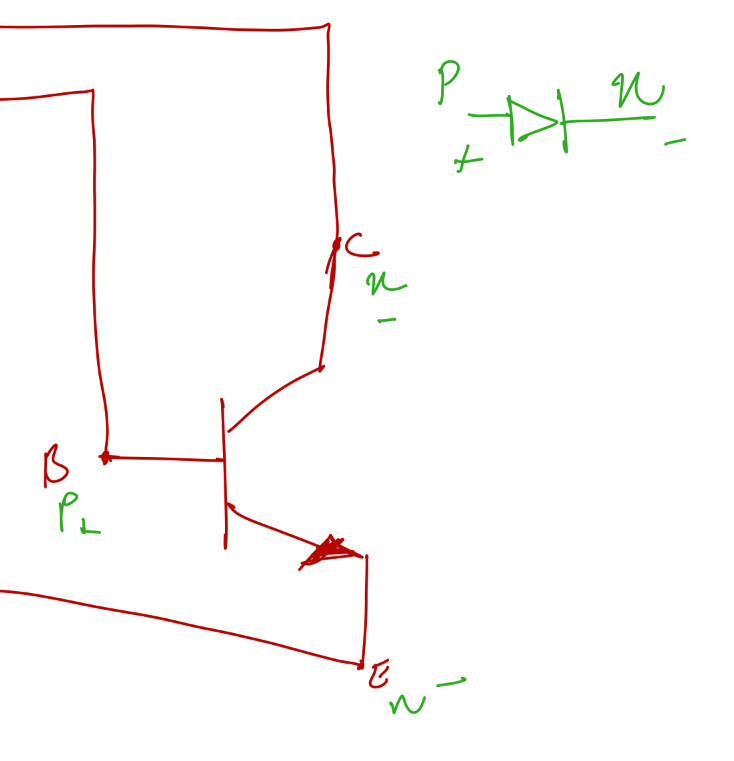 P n
+ -
C
n
-
B
P+
E
n -